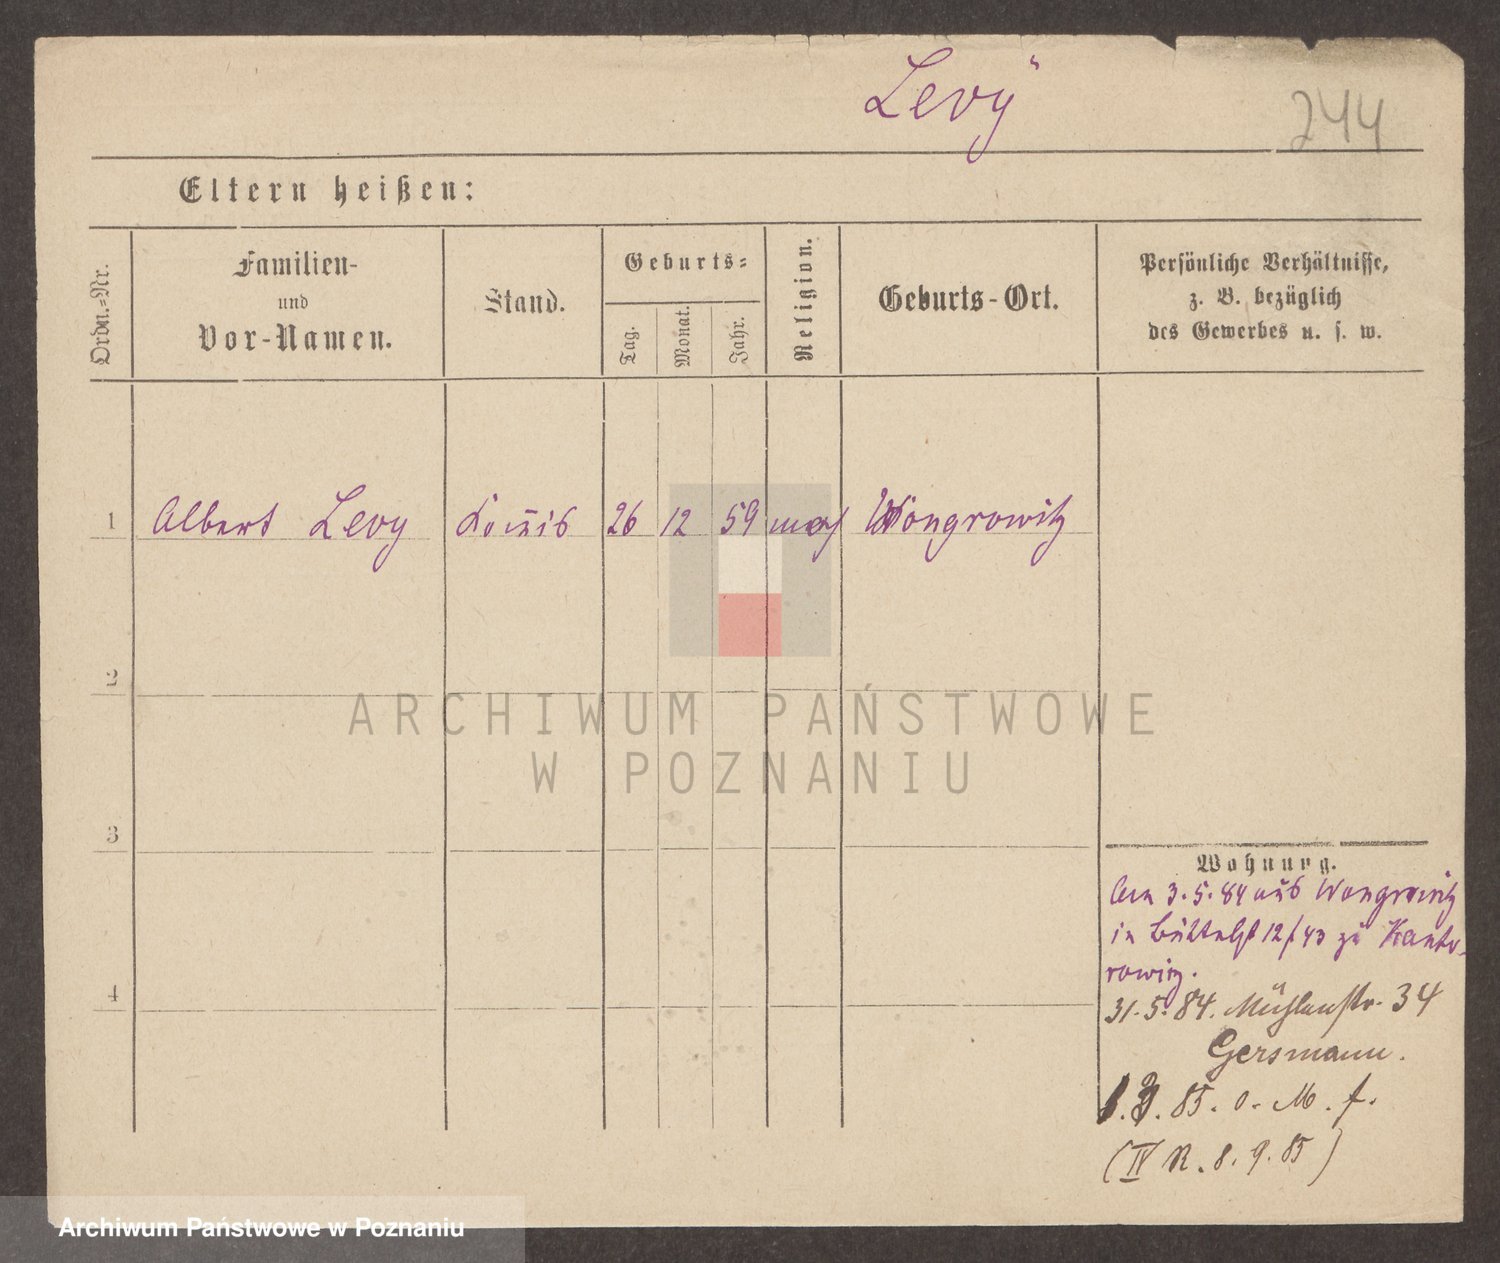 Levÿ
244
Eltern heißen:
Ordn.-Nr.
Familien-
und
Vor-Namen.
Stand.
Geburts-
Tag.
Monat.
Jahr.
Religion.
Geburts-Ort.
Persönliche Verhältnisse,
z. B. bezüglich
des Gewerbes u. s. w.
1 Albert Levy Com̅is 26 12 59 mos Wongrowitz
2
ARCHIWUM PAŃSTWOWE
W POZNANIU
3
Wohnung.
3.5.84 aus Wongrowitz
in Büttelst 12/ 43 zu Kanto-
rowicz.
4
31.5.84. Mühlenstr. 34
Gersmann.
85. o. M. f.
(IV R. 8. 9. 85)
Archiwum Państwowe w Poznaniu